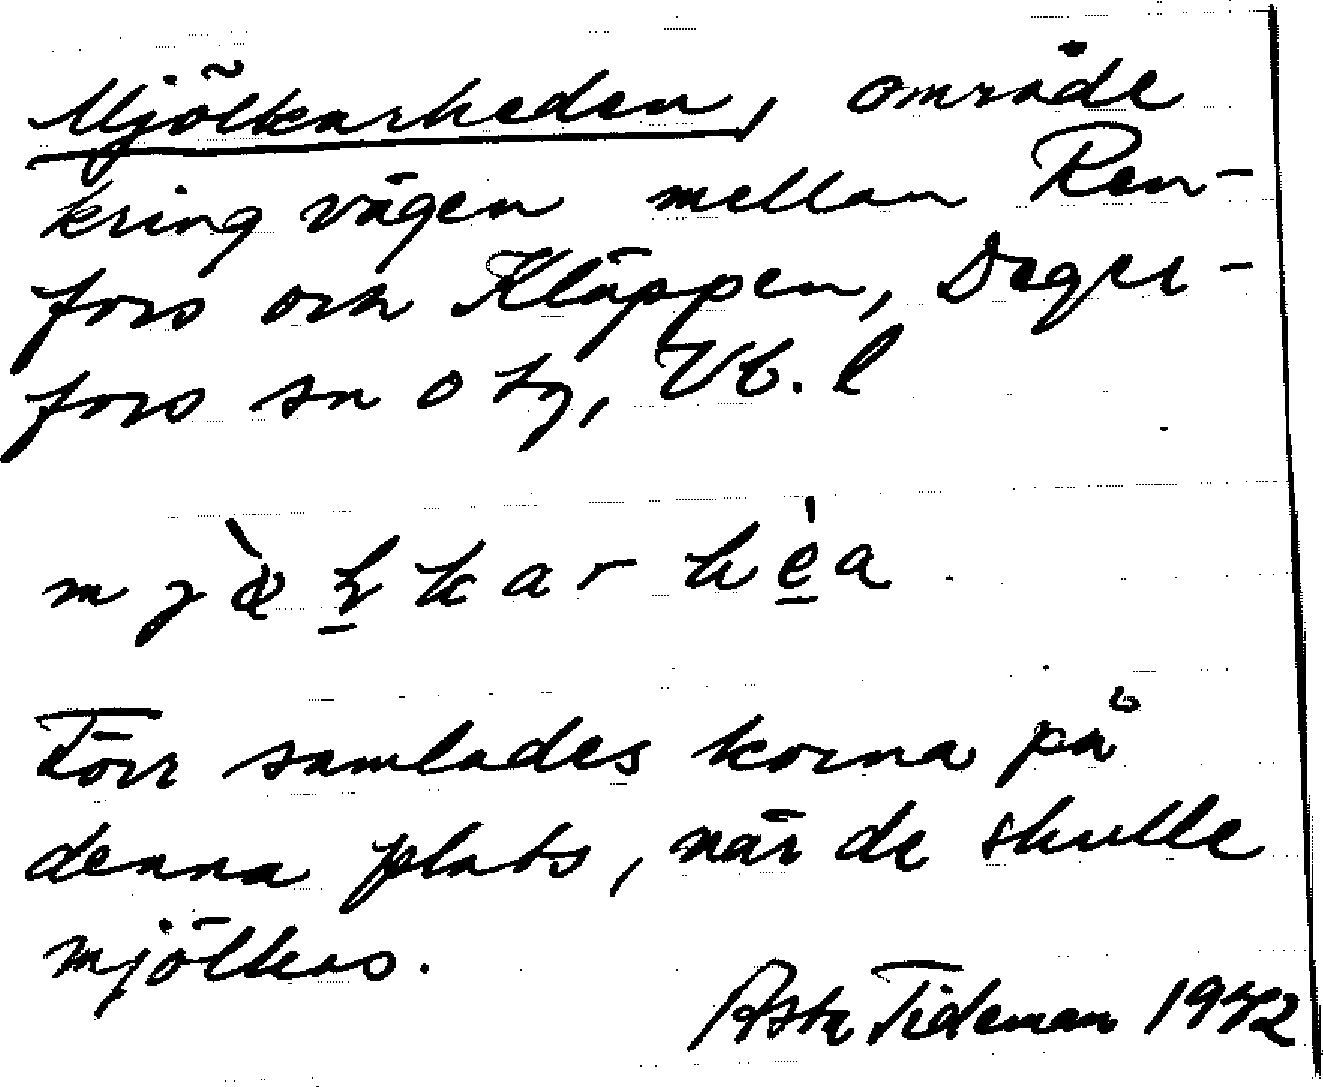 Mjölkarheden, område
kring vägen mellan Ren-
fors och Kläppen, Deger-
fors sn o tg, Vb. l
Förr samlades korna på
denna plats, när de skulle
mjölkas.
Asta Tideman 1942